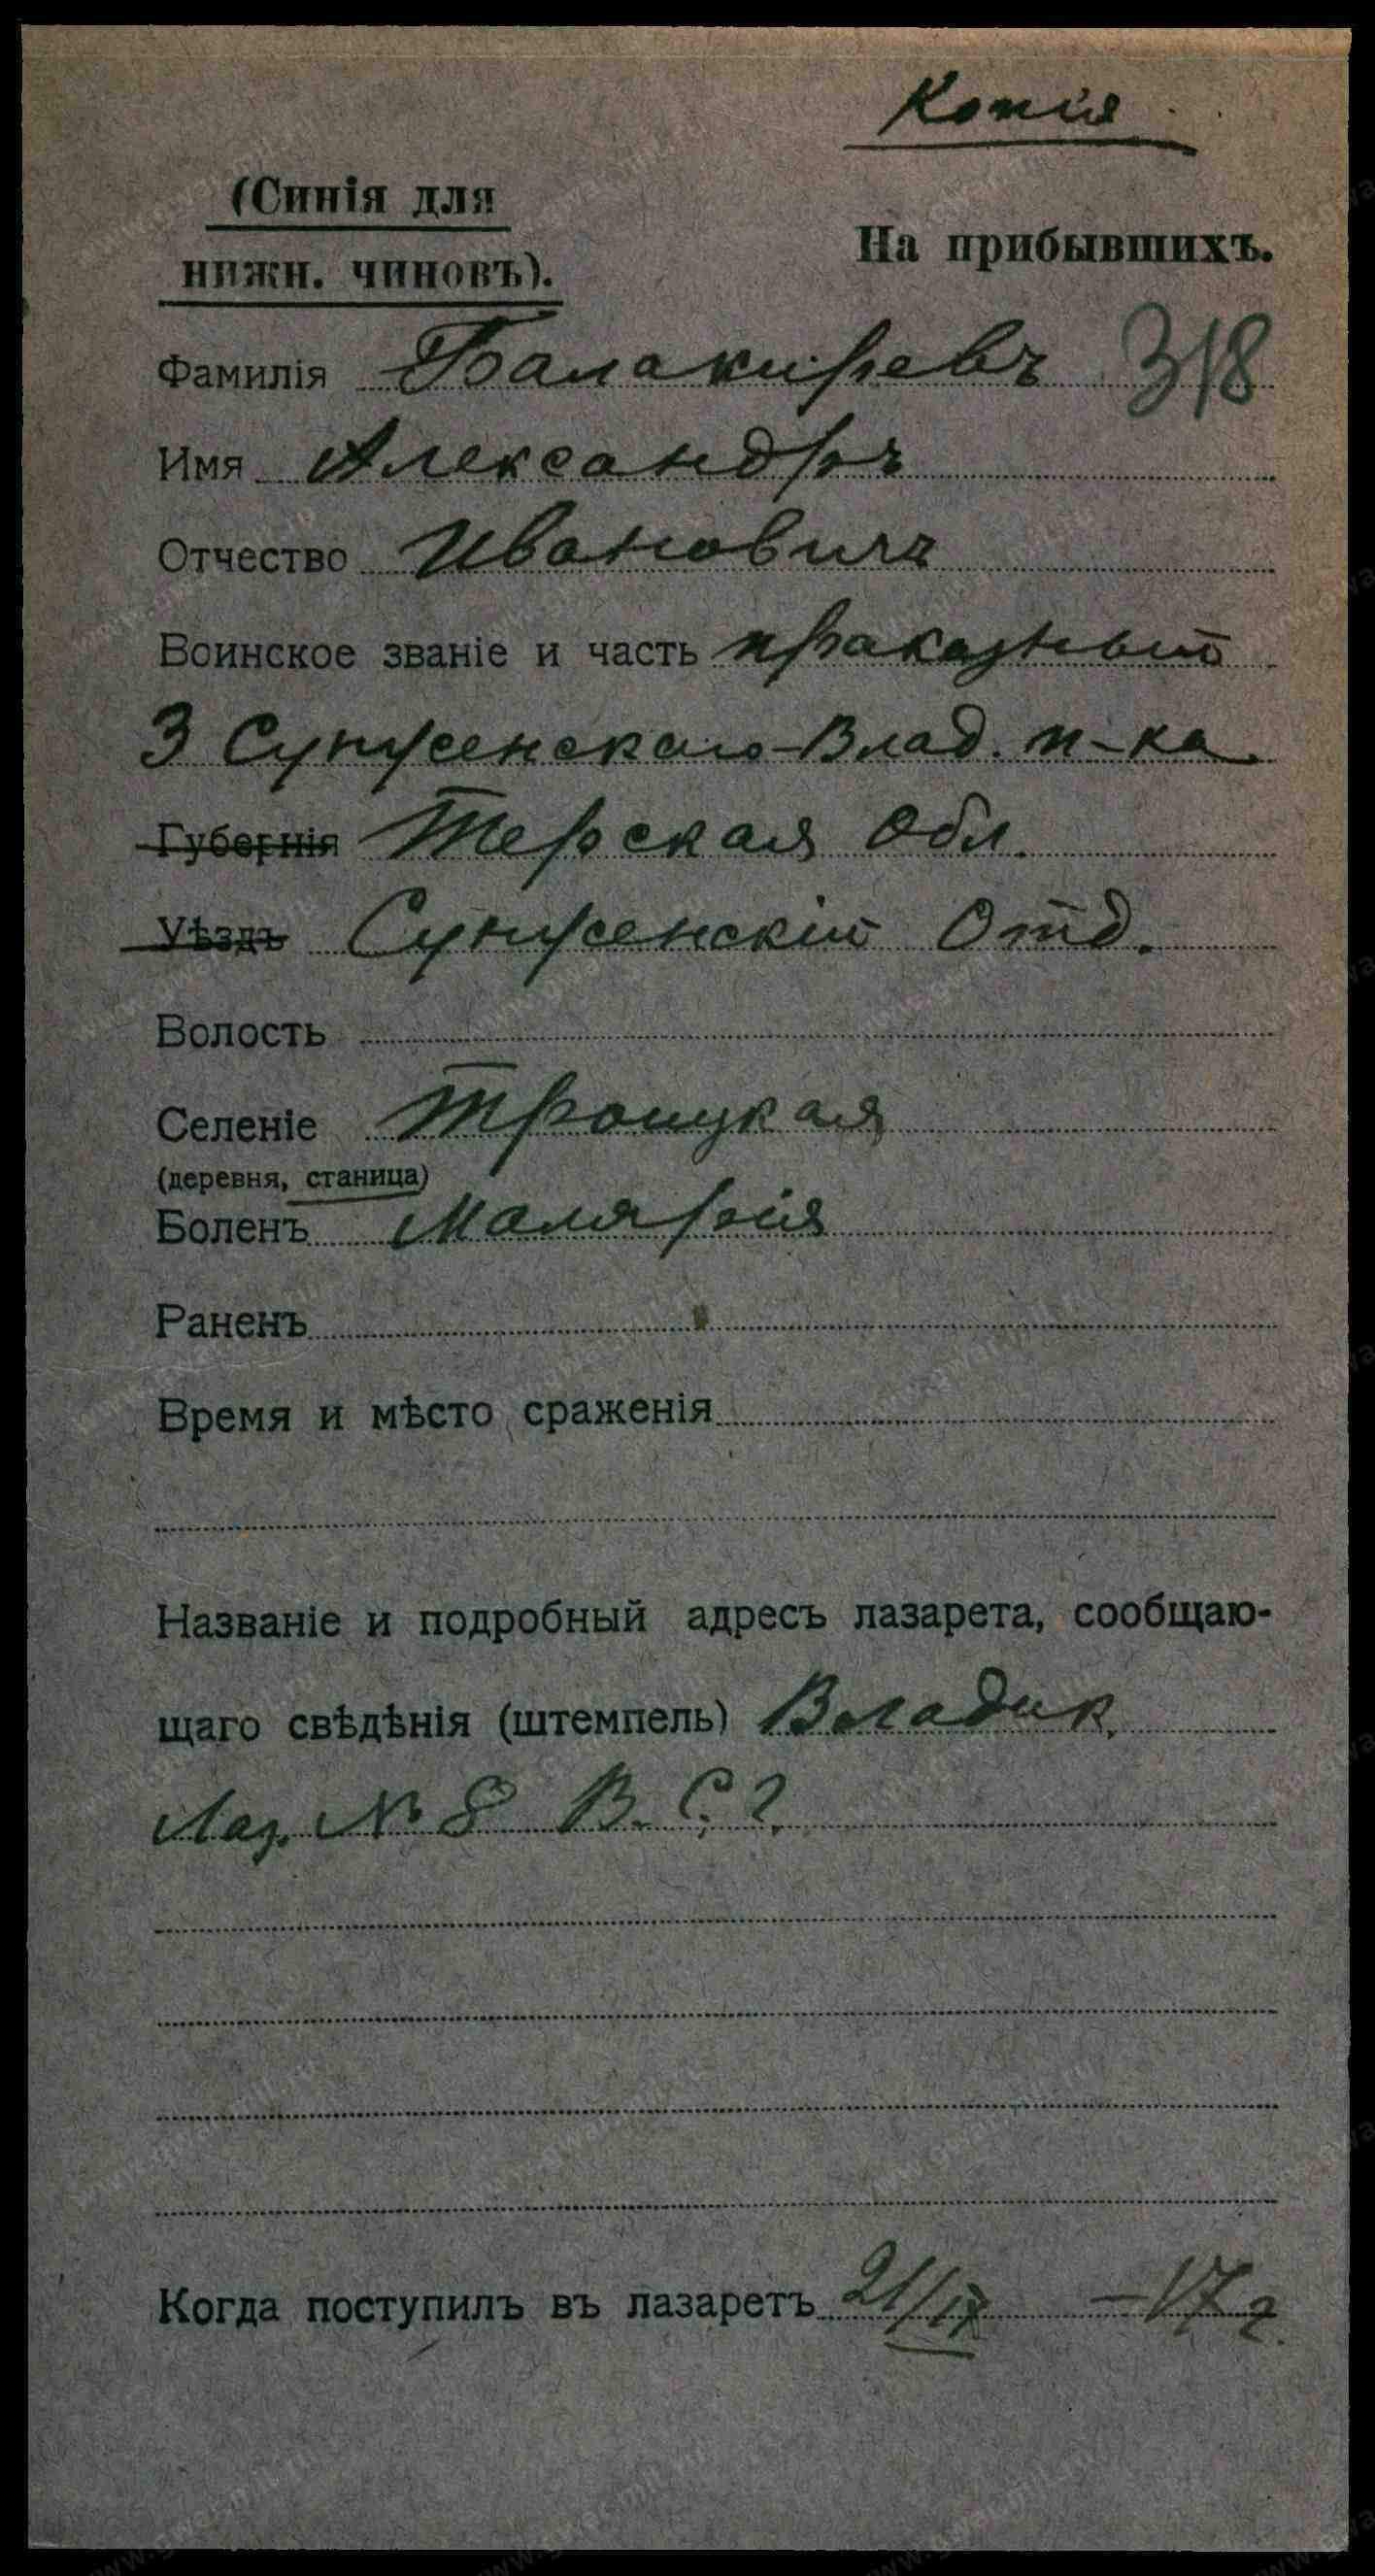 Копія
(Синія для
нижн. чиновъ).
На прибывшихъ.
Фамилія Балакиревъ 318
Имя Александръ
Отчество Ивановичъ
Воинское званіе и часть приказный
3 Сунженскаго-Влад. п-ка
Губернія Терская Обл.
Уѣздъ Сунженскій Отд.
Волость
Селеніе Троицкая
(деревня, станица)
Боленъ Малярія
Раненъ
Время и мѣсто сраженія
Названіе и подробный адресъ лазарета, сообщаю-
щаго свѣдѣнія (штемпель) Владик.
Лаз. № 8 В. С. Г.
Когда поступилъ въ лазаретъ 21/IX –17 г.